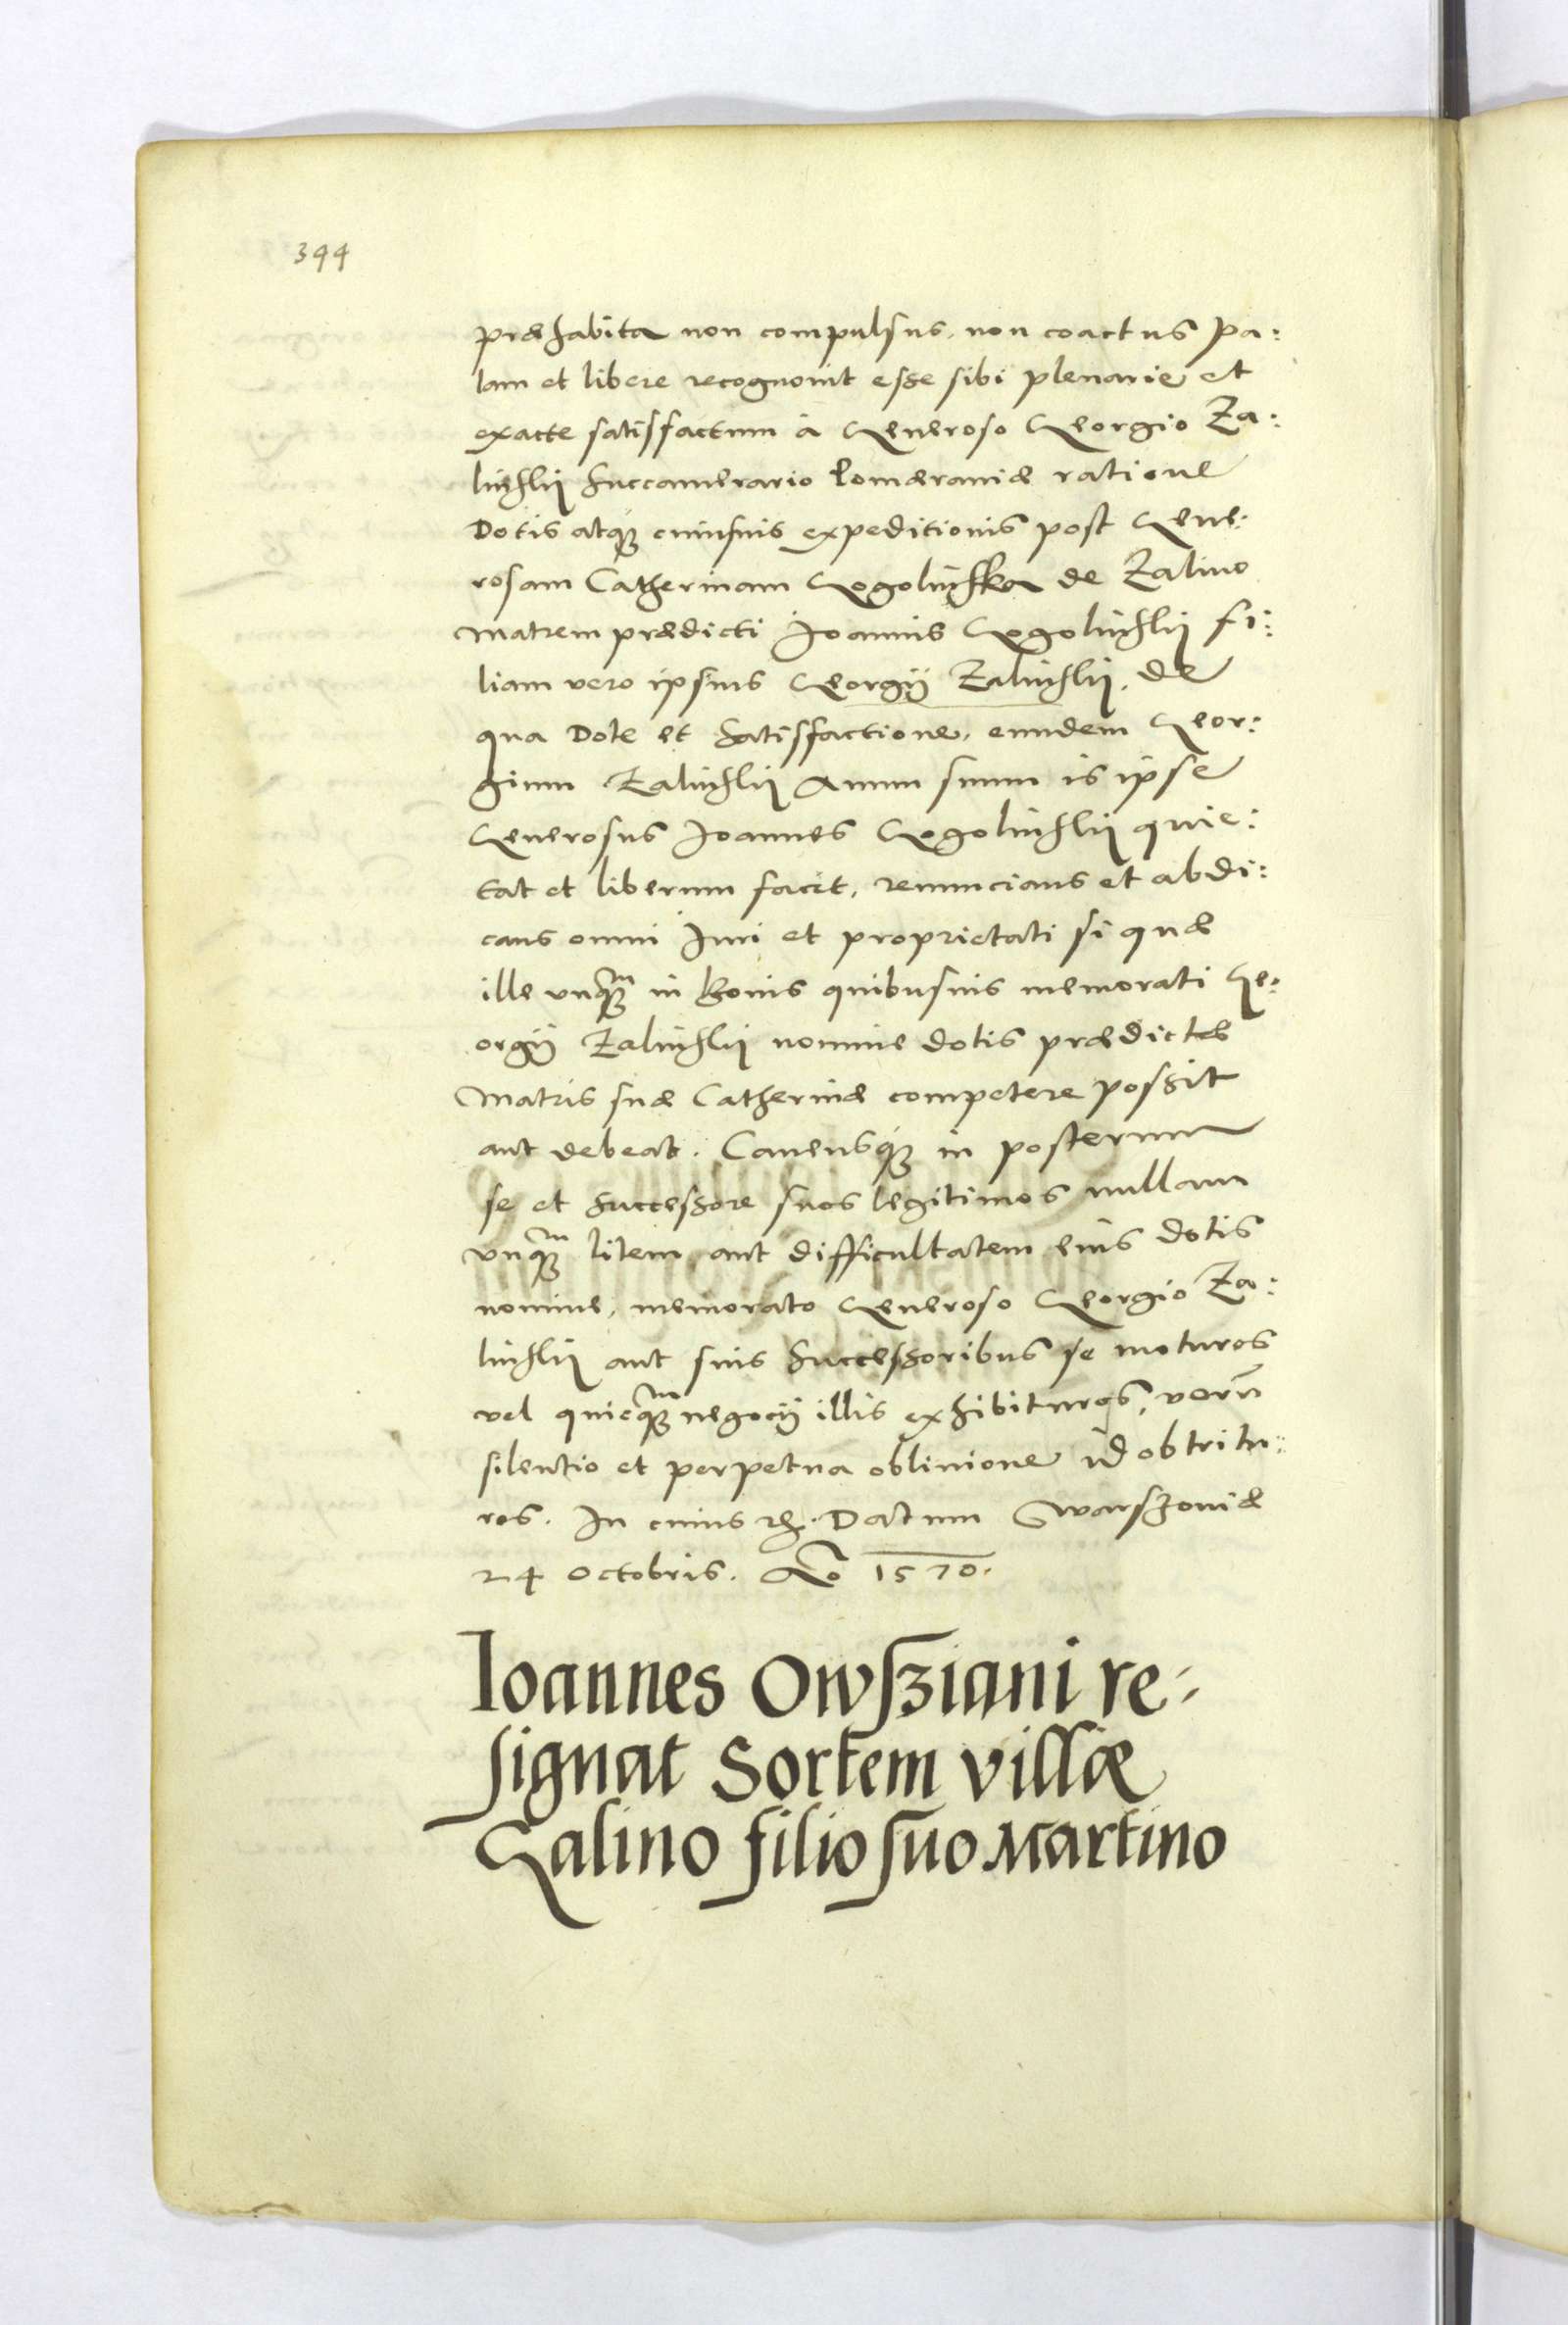 344
præhabita non compulsus, non coactus pa:
lam et libere recognouit esse sibi plenarie et
exacte satisfactum à Generoso Georgio Za:
linskij Succamerario Pomæraniæ ratione
Dotis atque cuiusuis expeditionis post Gene:
rosam Catherinam Gogolinska de Zalino
Matrem prædicti Joannis Gogolinskij fi:
liam vero ipsius Georgij Zalinskij. de
qua Dote et Satisfactione, eundem Geor:
gium Zalinskij Auum suum is ipse
Generosus Joannes Gogolinskij quie:
tat et liberum facit, renuncians et abdi:
cans omni Juri et proprietati si quæ
ille vnquam in Bonis quibusuis memorati Ge:
orgij Zalinskij nomine dotis prædictæ
Matris suæ Catherinæ competere possit
aut debeat. Cauensque in posterum
se et Successore suos legitimos nullam
vnquam litem aut difficultatem eius dotis
nomine, memorato Generoso Georgio Za:
linskij aut suis Successoribus se moturos
vel quicquam negocij illis exhibituros, verũ
silentio et perpetua obliuione id obtritu:
ros. In cuius rei. Datum Warszouiæ
24 Octobris. Ao 1570.
Ioannes Owsziani re-
signat Sortem villæ
Zalino filio suo Martino